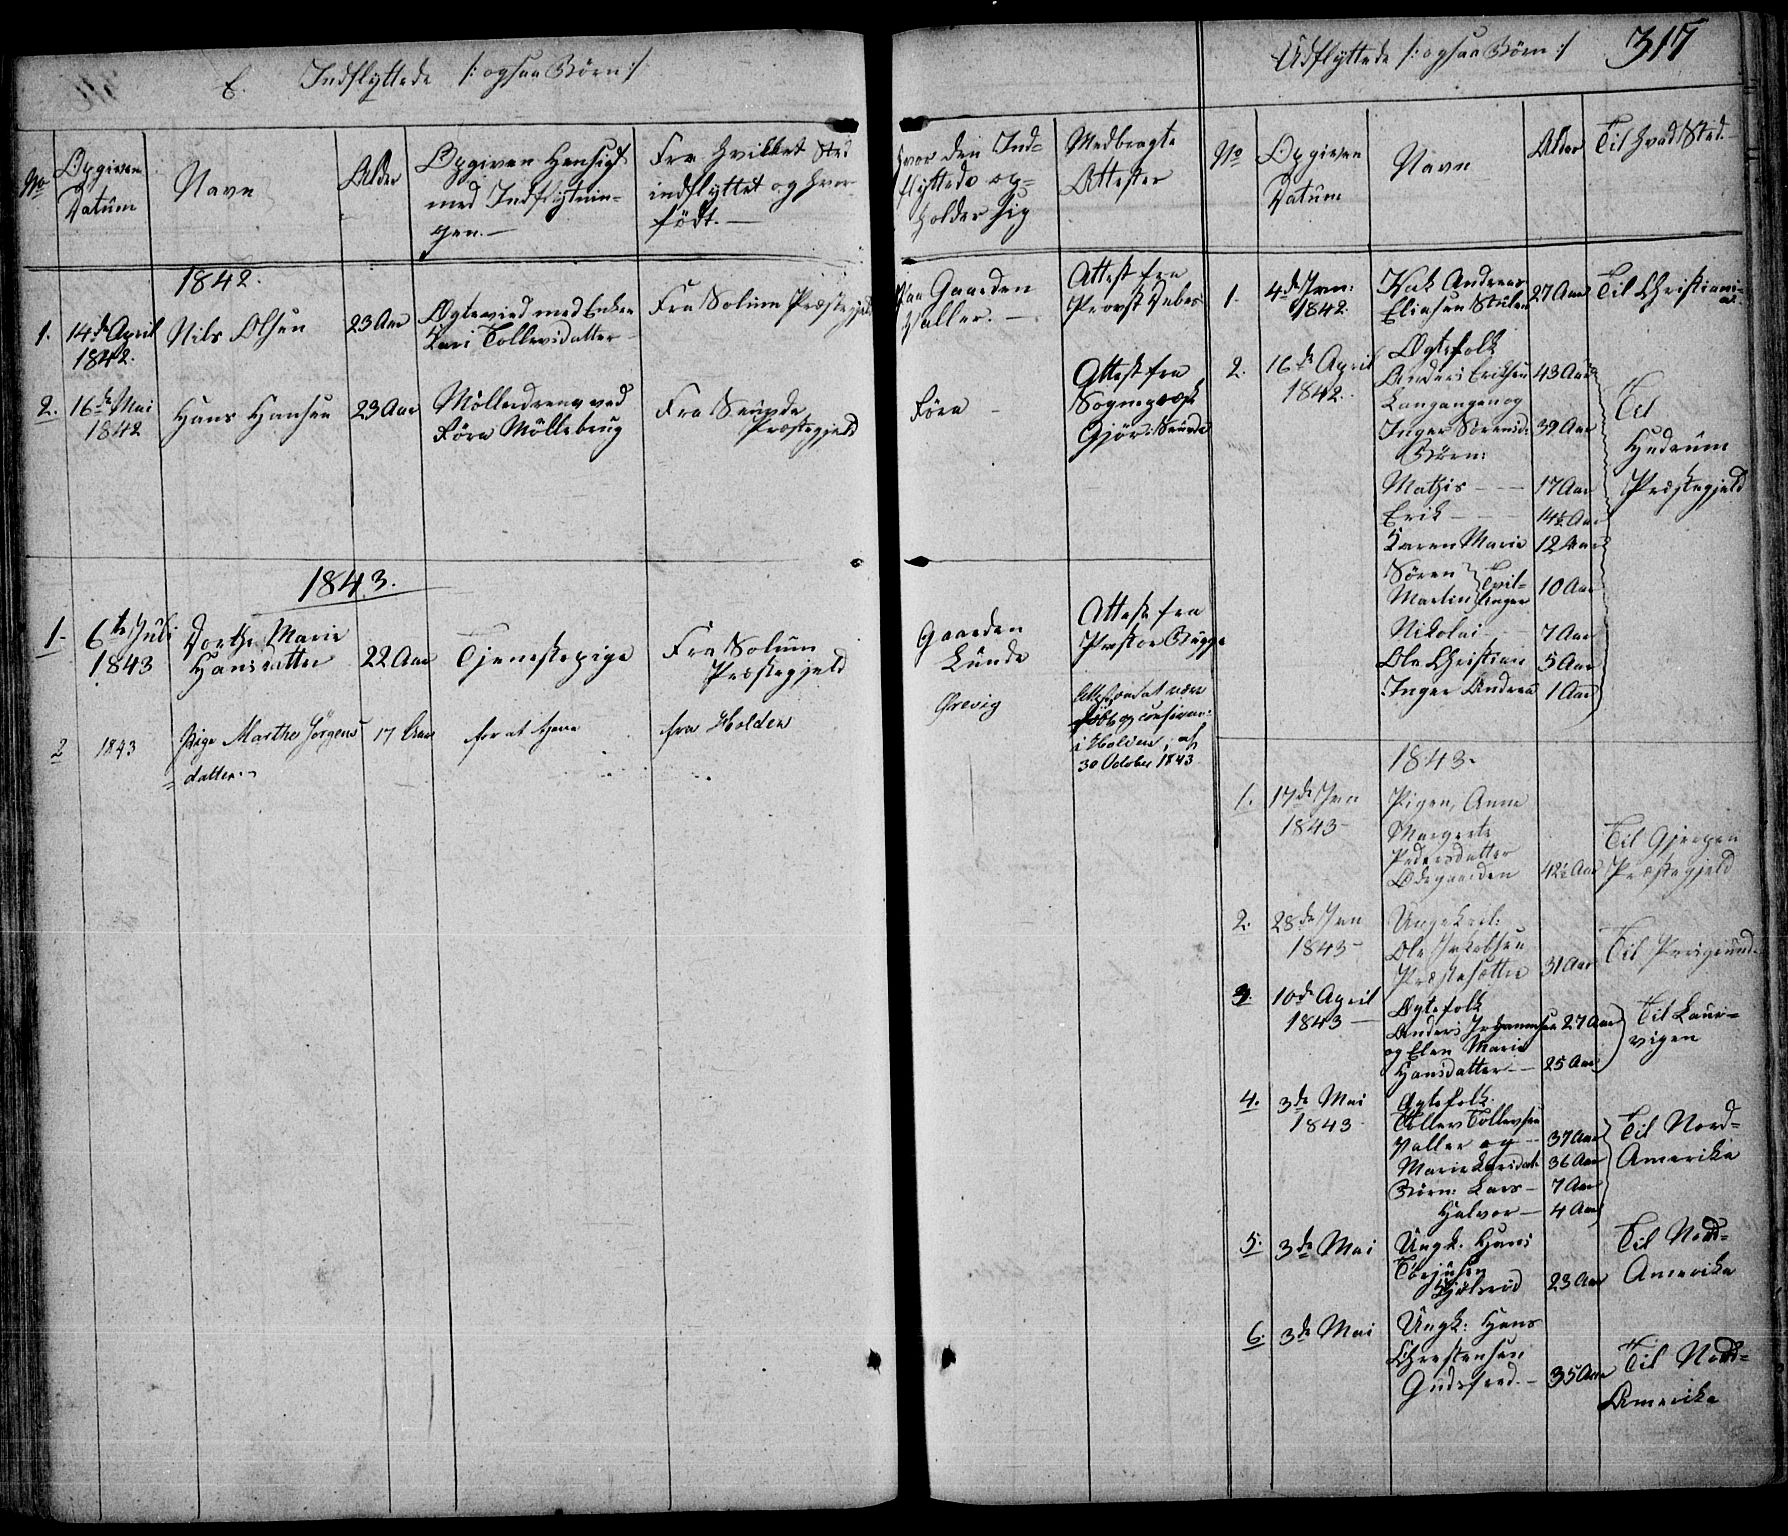 E. Indflyttede /: ogsaa Børn :/
No
Opgiven
Datum
Navn
Alder
Opgiven Hensigt
med Indflytnin-
gen. —
Fra hvilket Sted
indflyttet og hvor
født. —
Hvor den Ind-
flyttede op-
holder sig
Medbragte
Attester
1842.
1. 14de April
1842.
Nils Olsen
23 Aar
Ægteviet med Enken
Kari Tollevsdatter
Fra Solum Præstegjeld
Paa Gaarden
Valler. —
Attest fra
Provst
2. 16de Mai
1842
Hans Hansen
23 Aar
Mölledreng ved
Föra Möllebrug
Fra Saude
Præstegjeld
Föra —
Attest fra
Sognepræst
Saude
1843.
1. 6te Juli
1843
Dorthe Marie
Hansdatter
22 Aar
Tjenestepige
Fra Solum
Præstegjeld
Gaarden
Lunde
Attest fra
Præsten Bugge
2 1843
Pige Marthe Jörgens
datter.
17 Aar
for at tjene
fra Holden
Ørevig
Attest om at være
født og confirme:
i Holden, af
30 October 1843
Udflyttede /: ogsaa Börn :/ 317
No
Opgiven
Datum
Navn
Alder
Til hvad Sted.
1. 4de Jan:
1842.
Isak Andreas
Eliasen Stulen
27 Aar
Til Christiani-
a.
2. 16de April
1842.
Ægtefolk
Anders Eriksen 43 Aar
Langangen og
Inger Sörensd: 39 Aar
Börn:
Mathis — — 17 Aar
Erik — — 14½ Aar
Karen Marie 12 Aar
Sören } Tvil-
Martin } linger 10 Aar
Nikolai — 7 Aar
Ole Christian 5 Aar
Inger Andrea 1 Aar
Til
Hudrum
Præstegjeld
1843.
1. 17de Jan
1843 —
Pigen, Anne
Margrete
Pedersdatter
Ødegaarden 42½ Aar
Til Gjerpen
Præstegjeld
2. 28de Jan
1843 —
Ungkarl:
Ole Jakobsen
Præstesætter 31 Aar
Til Porsgrund.
3. 10de April
1843 —
Ægtefolk
Anders Johannesen 27 Aar
og Elen Marie
Hansdatter — 25 Aar
Til Laur-
vigen
4. 3de Mai
1843
Ægtefolk.
Tollev Tollevsen
Valler og — 37 Aar
Marie Larsdatt. 36 Aar
Börn: Lars — 7 Aar
Halvor — 4 Aar
Til Nord-
Amerika
5. 3de Mai
Ungk. Hans
Torjusen
23 Aar
Til Nord-
Amerika
6. 3de Mai
Ungk: Hans
Christensen
35 Aar
Til Nord-
Amerika